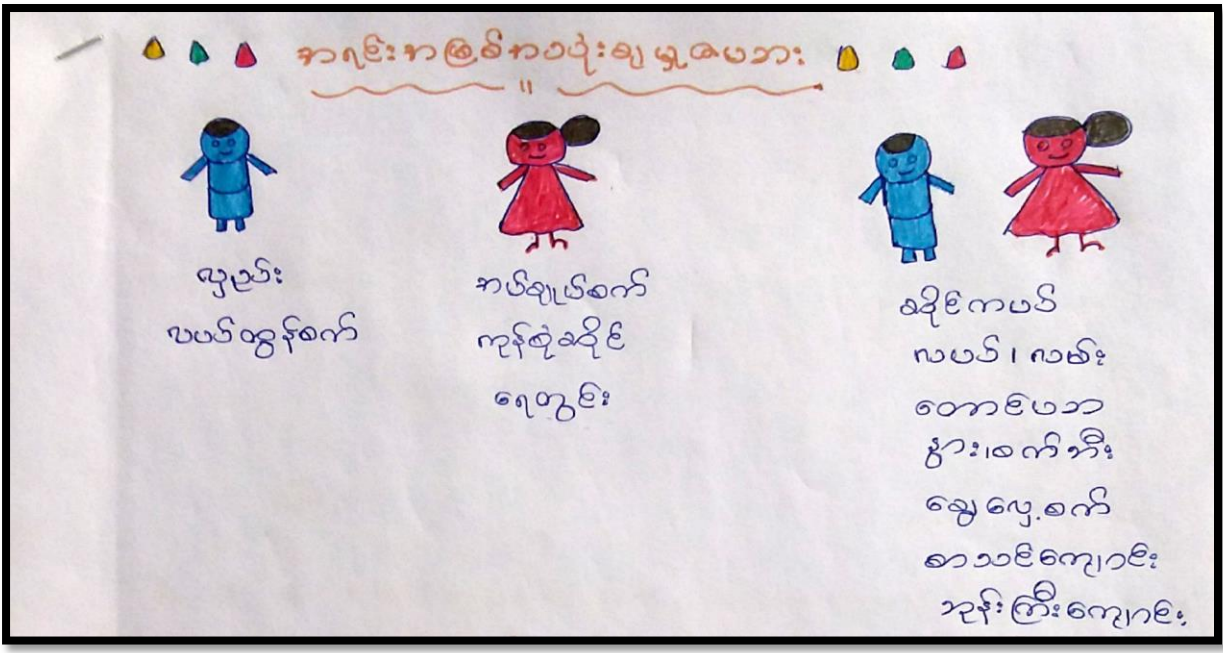 အရင်းအမြစ်အသုံးချမှုဇယား
"
လှည်း
လယ်ထွန်စက်
အပ်ချုပ်စက်
ကုန်စုံဆိုင်
ရေတွင်း
ဆိုင်ကယ်
လယ်၊လမ်း
တောင်ယာ
နွား၊စက်ဘီး
ချွေလှေ့စက်
စာသင်ကျောင်း
ဘုန်းကြီးကျောင်း